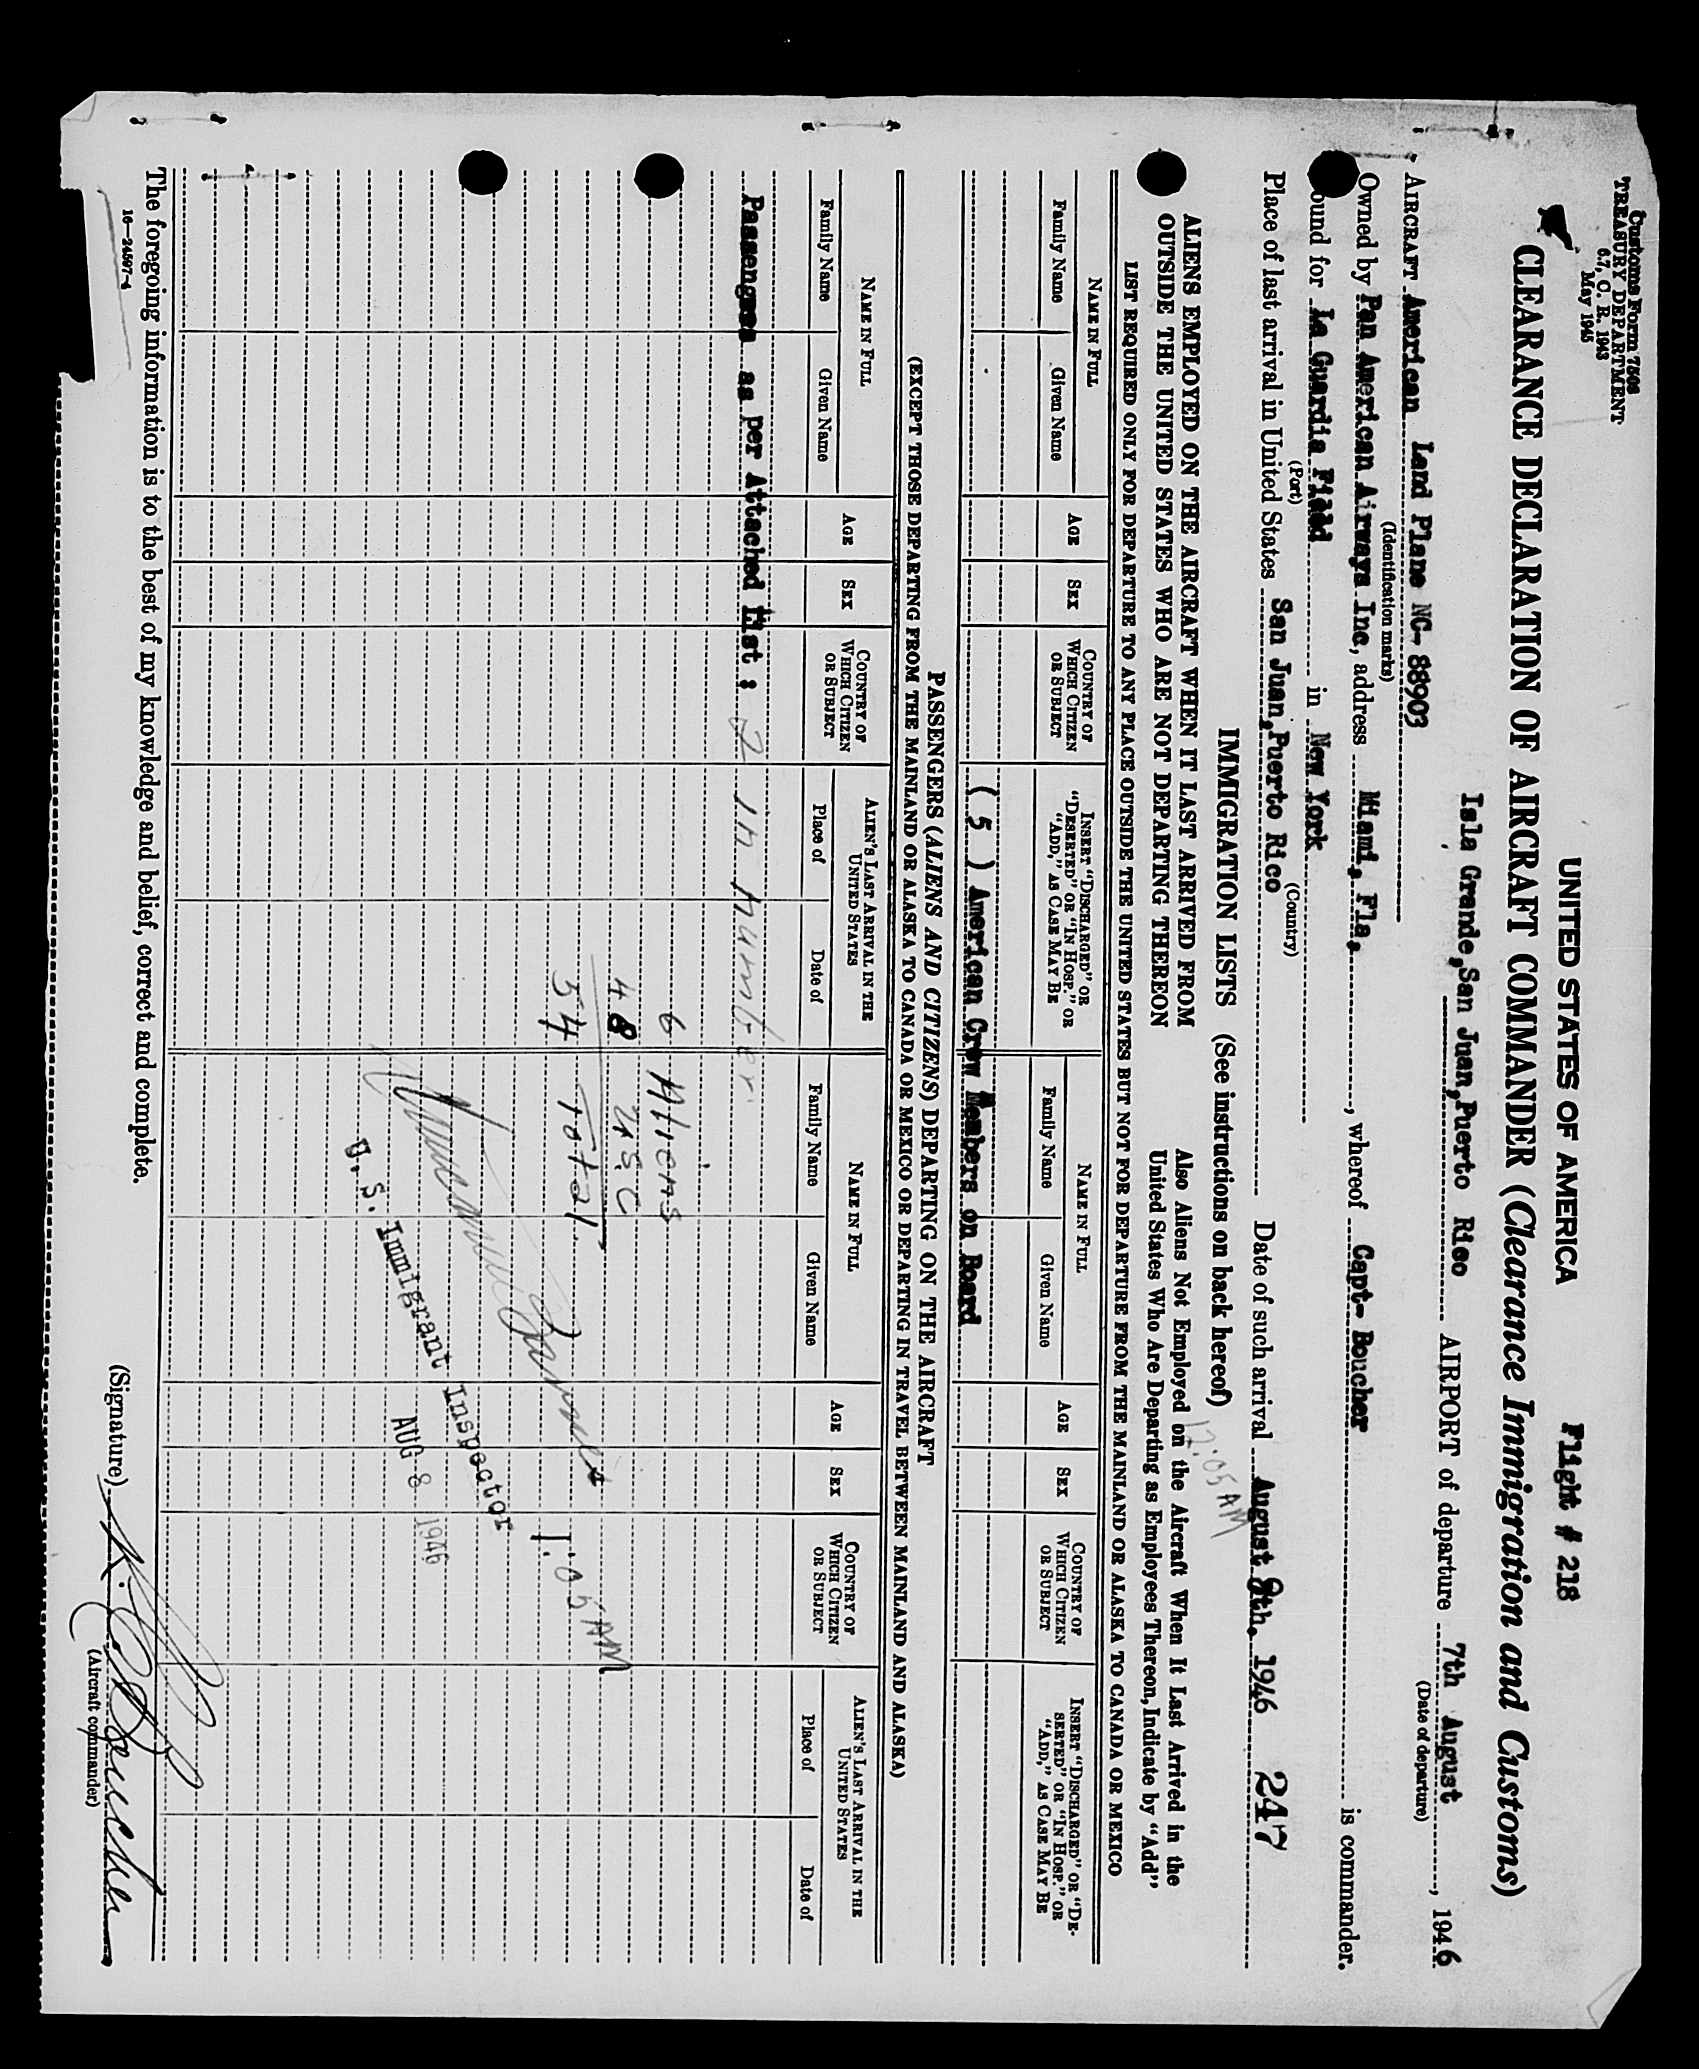 Customs Form 7508
TREASURY DEPARTMENT
6.7, C. R. 1943
May 1945
UNITED STATES OF AMERICA
Flight # 218
CLEARANCE DECLARATION OF AIRCRAFT COMMANDER (Clearance Immigration and Customs)
Isla Grande, San Juan, Puerto Rico AIRPORT of departure 7th August, 1946
(Date of departure)
AIRCRAFT American Land Plane NC- 88903
(Identification marks)
Owned by Pan American Airways Inc, address Miami, Fla., whereof Capt- Boucher is commander.
ound for La Guardia Field in New York
(Port) (Country)
Place of last arrival in United States San Juan, Puerto Rico Date of such arrival August 8th. 1946 247
12:05 AM
IMMIGRATION LISTS (See instructions on back hereof)
ALIENS EMPLOYED ON THE AIRCRAFT WHEN IT LAST ARRIVED FROM
OUTSIDE THE UNITED STATES WHO ARE NOT DEPARTING THEREON
Also Aliens Not Employed on the Aircraft When It Last Arrived in the
United States Who Are Departing as Employees Thereon, Indicate by "Add"
LIST REQUIRED ONLY FOR DEPARTURE TO ANY PLACE OUTSIDE THE UNITED STATES BUT NOT FOR DEPARTURE FROM THE MAINLAND OR ALASKA TO CANADA OR MEXICO
NAME IN FULL
Family Name Given Name
AGE
SEX
COUNTRY OF
WHICH CITIZEN
OR SUBJECT
INSERT "DISCHARGED" OR
"DESERTED" OR "IN HOSP." OR
"ADD," AS CASE MAY BE
NAME IN FULL
Family Name Given Name
AGE
SEX
COUNTRY OF
WHICH CITIZEN
OR SUBJECT
INSERT "DISCHARGED" OR "DE-
SERTED" OR "IN HOSP." OR
"ADD," AS CASE MAY BE
( 5 ) American Crew Members on Board
PASSENGERS (ALIENS AND CITIZENS) DEPARTING ON THE AIRCRAFT
(EXCEPT THOSE DEPARTING FROM THE MAINLAND OR ALASKA TO CANADA OR MEXICO OR DEPARTING IN TRAVEL BETWEEN MAINLAND AND ALASKA)
NAME IN FULL
Family Name Given Name
AGE
SEX
COUNTRY OF
WHICH CITIZEN
OR SUBJECT
ALIEN'S LAST ARRIVAL IN THE
UNITED STATES
Place of Date of
NAME IN FULL
Family Name Given Name
AGE
SEX
COUNTRY OF
WHICH CITIZEN
OR SUBJECT
ALIEN'S LAST ARRIVAL IN THE
UNITED STATES
Place of Date of
Passengers as per Attached List : 2 in number.
6 Aliens
48 U.S.C
54 Total
1:05 AM
U. S. Immigrant Inspector
AUG 8 1946
The foregoing information is to the best of my knowledge and belief, correct and complete.
(Signature) Boucher
(Aircraft commander)
16—24597-4